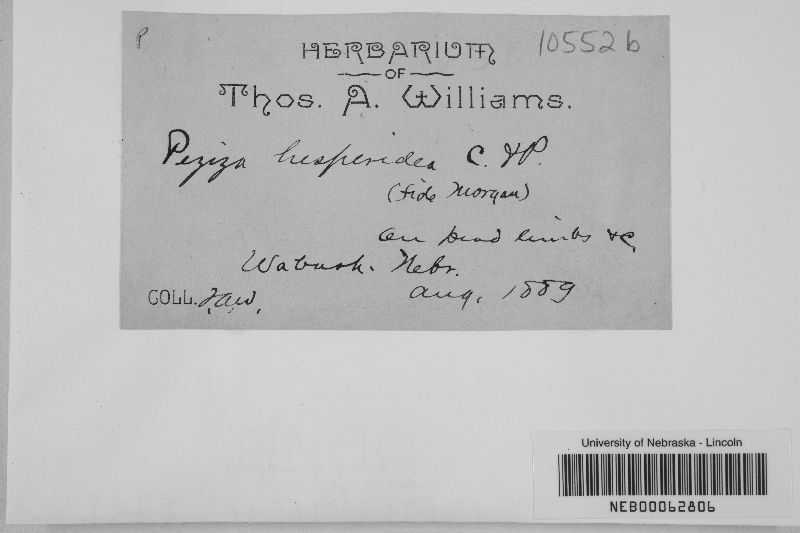 P
105526
HERBARIUM
OF
Thos. A. Williams.
Peziza hesperidea C. & P.
(fide Morgan)
On dead limbs &c,
Wabash. Nebr.
COLL. T.A.W.,
Aug, 1889
University of Nebraska - Lincoln
NEB00062806